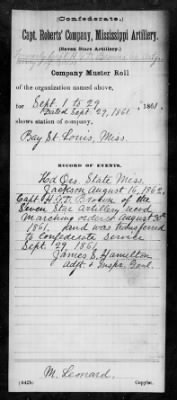 (Confederate.)
Capt. Roberts' Company, Mississippi Artillery.
(Seven Stars Artillery.)
Company Muster Roll
of the organization named above,
for Sept. 1 to 29, 1861.
Dated Sept 29, 1861.
shows station of company,
Bay St. Louis, Miss.
RECORD OF EVENTS.
Hd Qrs. State Miss.
Jackson August 16, 1862,
Capt. H.D. Bowen of the
Seven Star Artillery
marching ordered August 30th
1861, and was transferred
to Confederate Service
Sept. 29, 1861
James S. Hamilton
Adjt. & Inspr. Genl.
M. Leonard.
(642b)
Copyist.